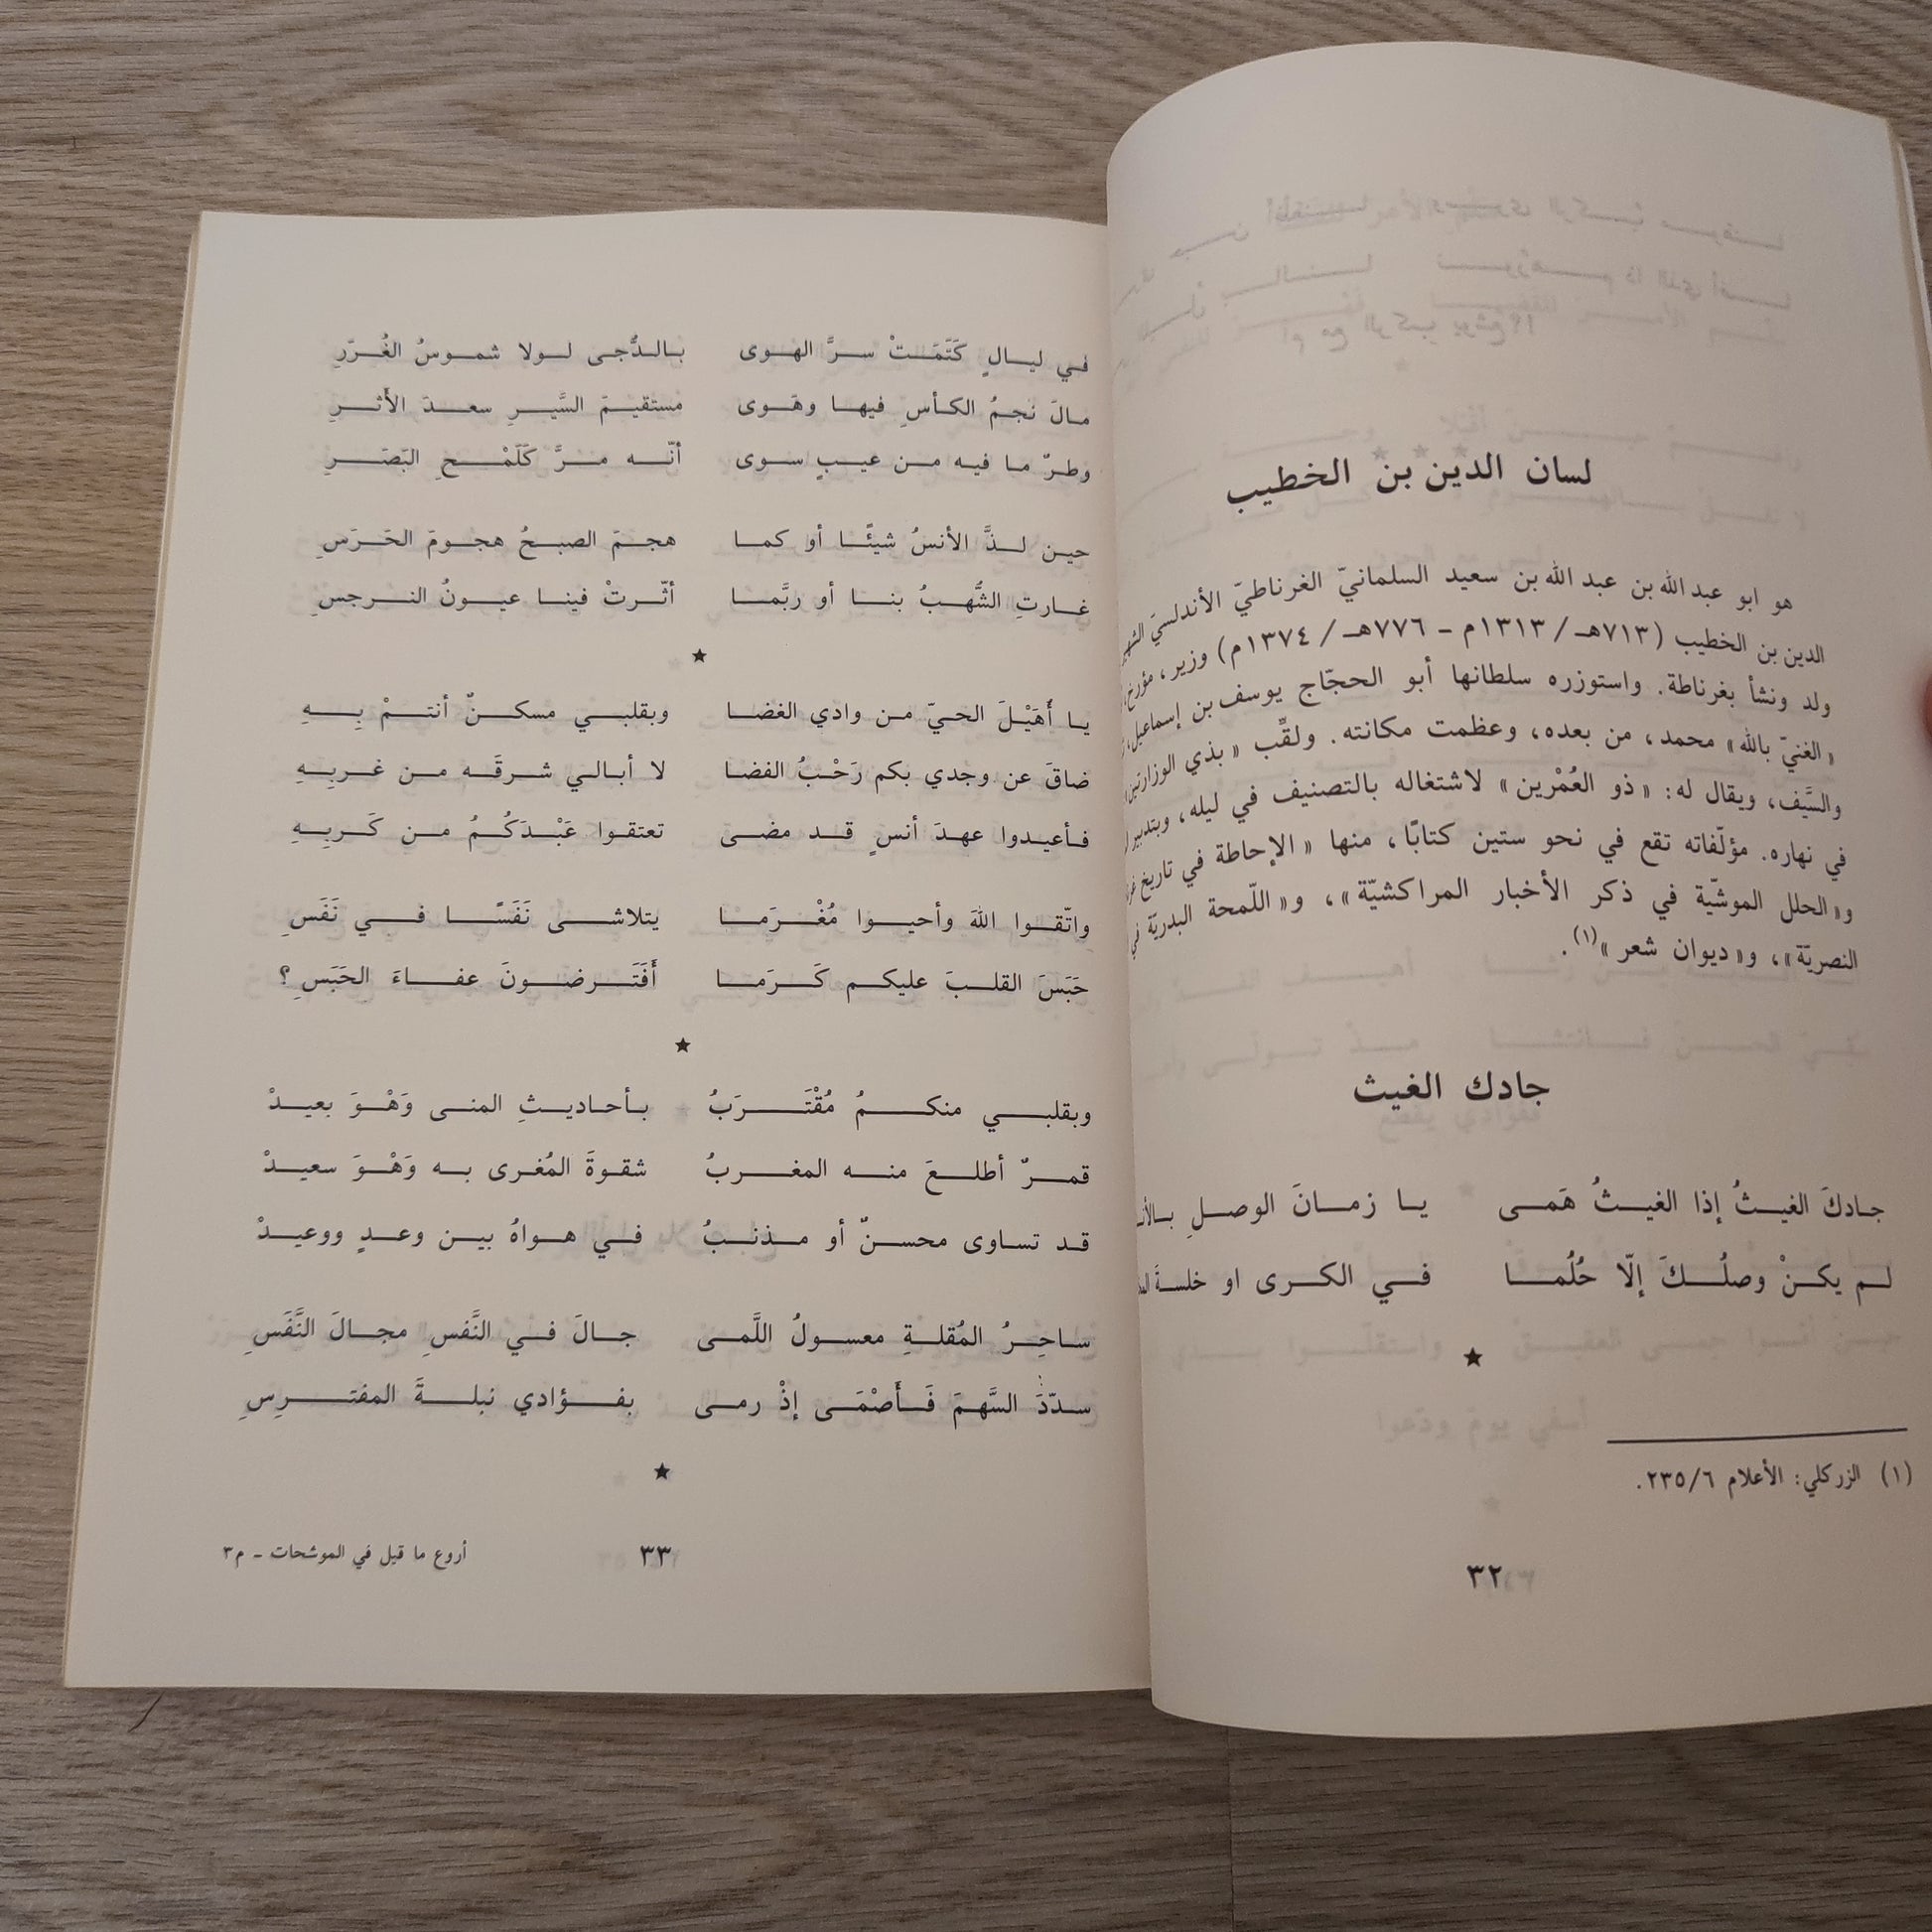 لسان الدين بن الخطيب
هو ابو عبد الله بن عبد الله بن سعيد السلمانيّ الغرناطيّ الأندلسيّ
الدين بن الخطيب (٧١٣هـ/ ١٣١٣م - ٧٧٦هـ/ ١٣٧٤م) وزير، مؤرخ،
ولد ونشأ بغرناطة. واستوزره سلطانها أبو الحجّاج يوسف بن إسماعيل،
«الغنيّ بالله» محمد، من بعده، وعظمت مكانته. ولقِّب «بذي الوزارتين
والسَّيف، ويقال له: «ذو العُمْرين» لاشتغاله بالتصنيف في ليله، وبتدبير
في نهاره. مؤلّفاته تقع في نحو ستين كتابًا، منها «الإحاطة في تاريخ
و«الحلل الموشيّة في ذكر الأخبار المراكشيّة»، و«اللّمحة البدريّة في
النصريّة»، و«ديوان شعر»(١).
جادك الغيث
جادكَ الغيثُ إذا الغيثُ هَمى يا زمانَ الوصلِ
لم يكنْ وصلُكَ إلّا حُلُما في الكرى او خلسةَ
★
(١) الزركلي: الأعلام ٢٣٥/٦.
٣٢
في ليالٍ كَتَمَتْ سرَّ الهوى بالدُّجى لولا شموسُ الغُرَرِ
مالَ نجمُ الكأسِ فيها وهَوى مستقيمَ السَّيرِ سعدَ الأثرِ
وطرٌ ما فيه من عيبٍ سوى أنّه مرَّ كَلَمْحِ البَصَرِ
حين لذَّ الأنسُ شيئًا أو كما هجمَ الصبحُ هجومَ الحَرَسِ
غارتِ الشُّهبُ بنا أو ربَّما أثّرتْ فينا عيونُ النرجسِ
★
يا أُهَيْلَ الحيّ من وادي الغضا وبقلبي مسكنٌ أنتمْ بِهِ
ضاقَ عن وجدي بكم رَحْبُ الفضا لا أبالي شرقَه من غربِهِ
فأعيدوا عهدَ أنسٍ قد مضى تعتقوا عَبْدَكُمُ من كَربِهِ
واتّقوا اللهَ وأحيوا مُغْرَما يتلاشى نَفَسًا في نَفَسِ
حَبَسَ القلبَ عليكم كَرَما أَفَتَرضونَ عفاءَ الحَبَسِ؟
★
وبقلبي منكمُ مُقْتَرَبُ بأحاديثِ المنى وَهْوَ بعيدْ
قمرٌ أطلعَ منه المغربُ شقوةَ المُغرى به وَهْوَ سعيدْ
قد تساوى محسنٌ أو مذنبُ في هواهُ بين وعدٍ ووعيدْ
ساحِرُ المُقلةِ معسولُ اللَّمى جالَ في النَّفسِ مجالَ النَّفَسِ
سدّدَ السَّهمَ فَأَصْمَى إذْ رمى بفؤادي نبلةَ المفترِسِ
★
٣٣
أروع ما قيل في الموشحات - م٣